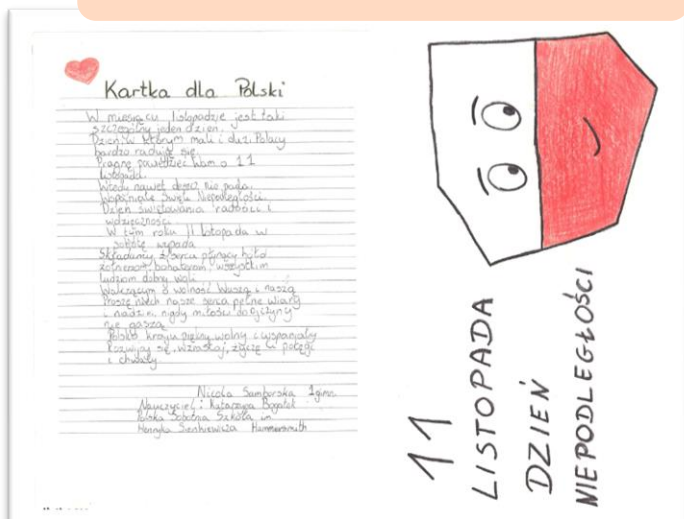 Kartka dla Polski
W miesiącu listopadzie jest taki
szczególny jeden dzień.
Dzień w którym mali i duzi Polacy
bardzo radują się.
Pragnę powiedzieć Wam o 11
listopada.
Wtedy nawet deszcz nie pada.
Wspaniałe Święto Niepodległości.
Dzień świętowania radości i
wdzięczności.
W tym roku 11 listopada w
sobotę wypada
Składamy z serca płynący hołd
żołnierzom, bohaterom, wszystkim
ludziom dobrej woli
Walczącym o wolność Waszą i naszą
Proszę niech nasze serca pełne wiary
i nadziei nigdy miłości do ojczyzny
nie gaszą
Polsko kraju piękny, wolny i wspaniały
Rozwijaj się, wzrastaj, życzę Ci potęgi
i chwały.
Nicola Samborska 1gimn.
Nauczyciel: Katarzyna
Polska Sobotnia Szkoła im.
Henryka Sienkiewicza Hammersmith
11
LISTOPADA
DZIEŃ
NIEPODLEGŁOŚCI